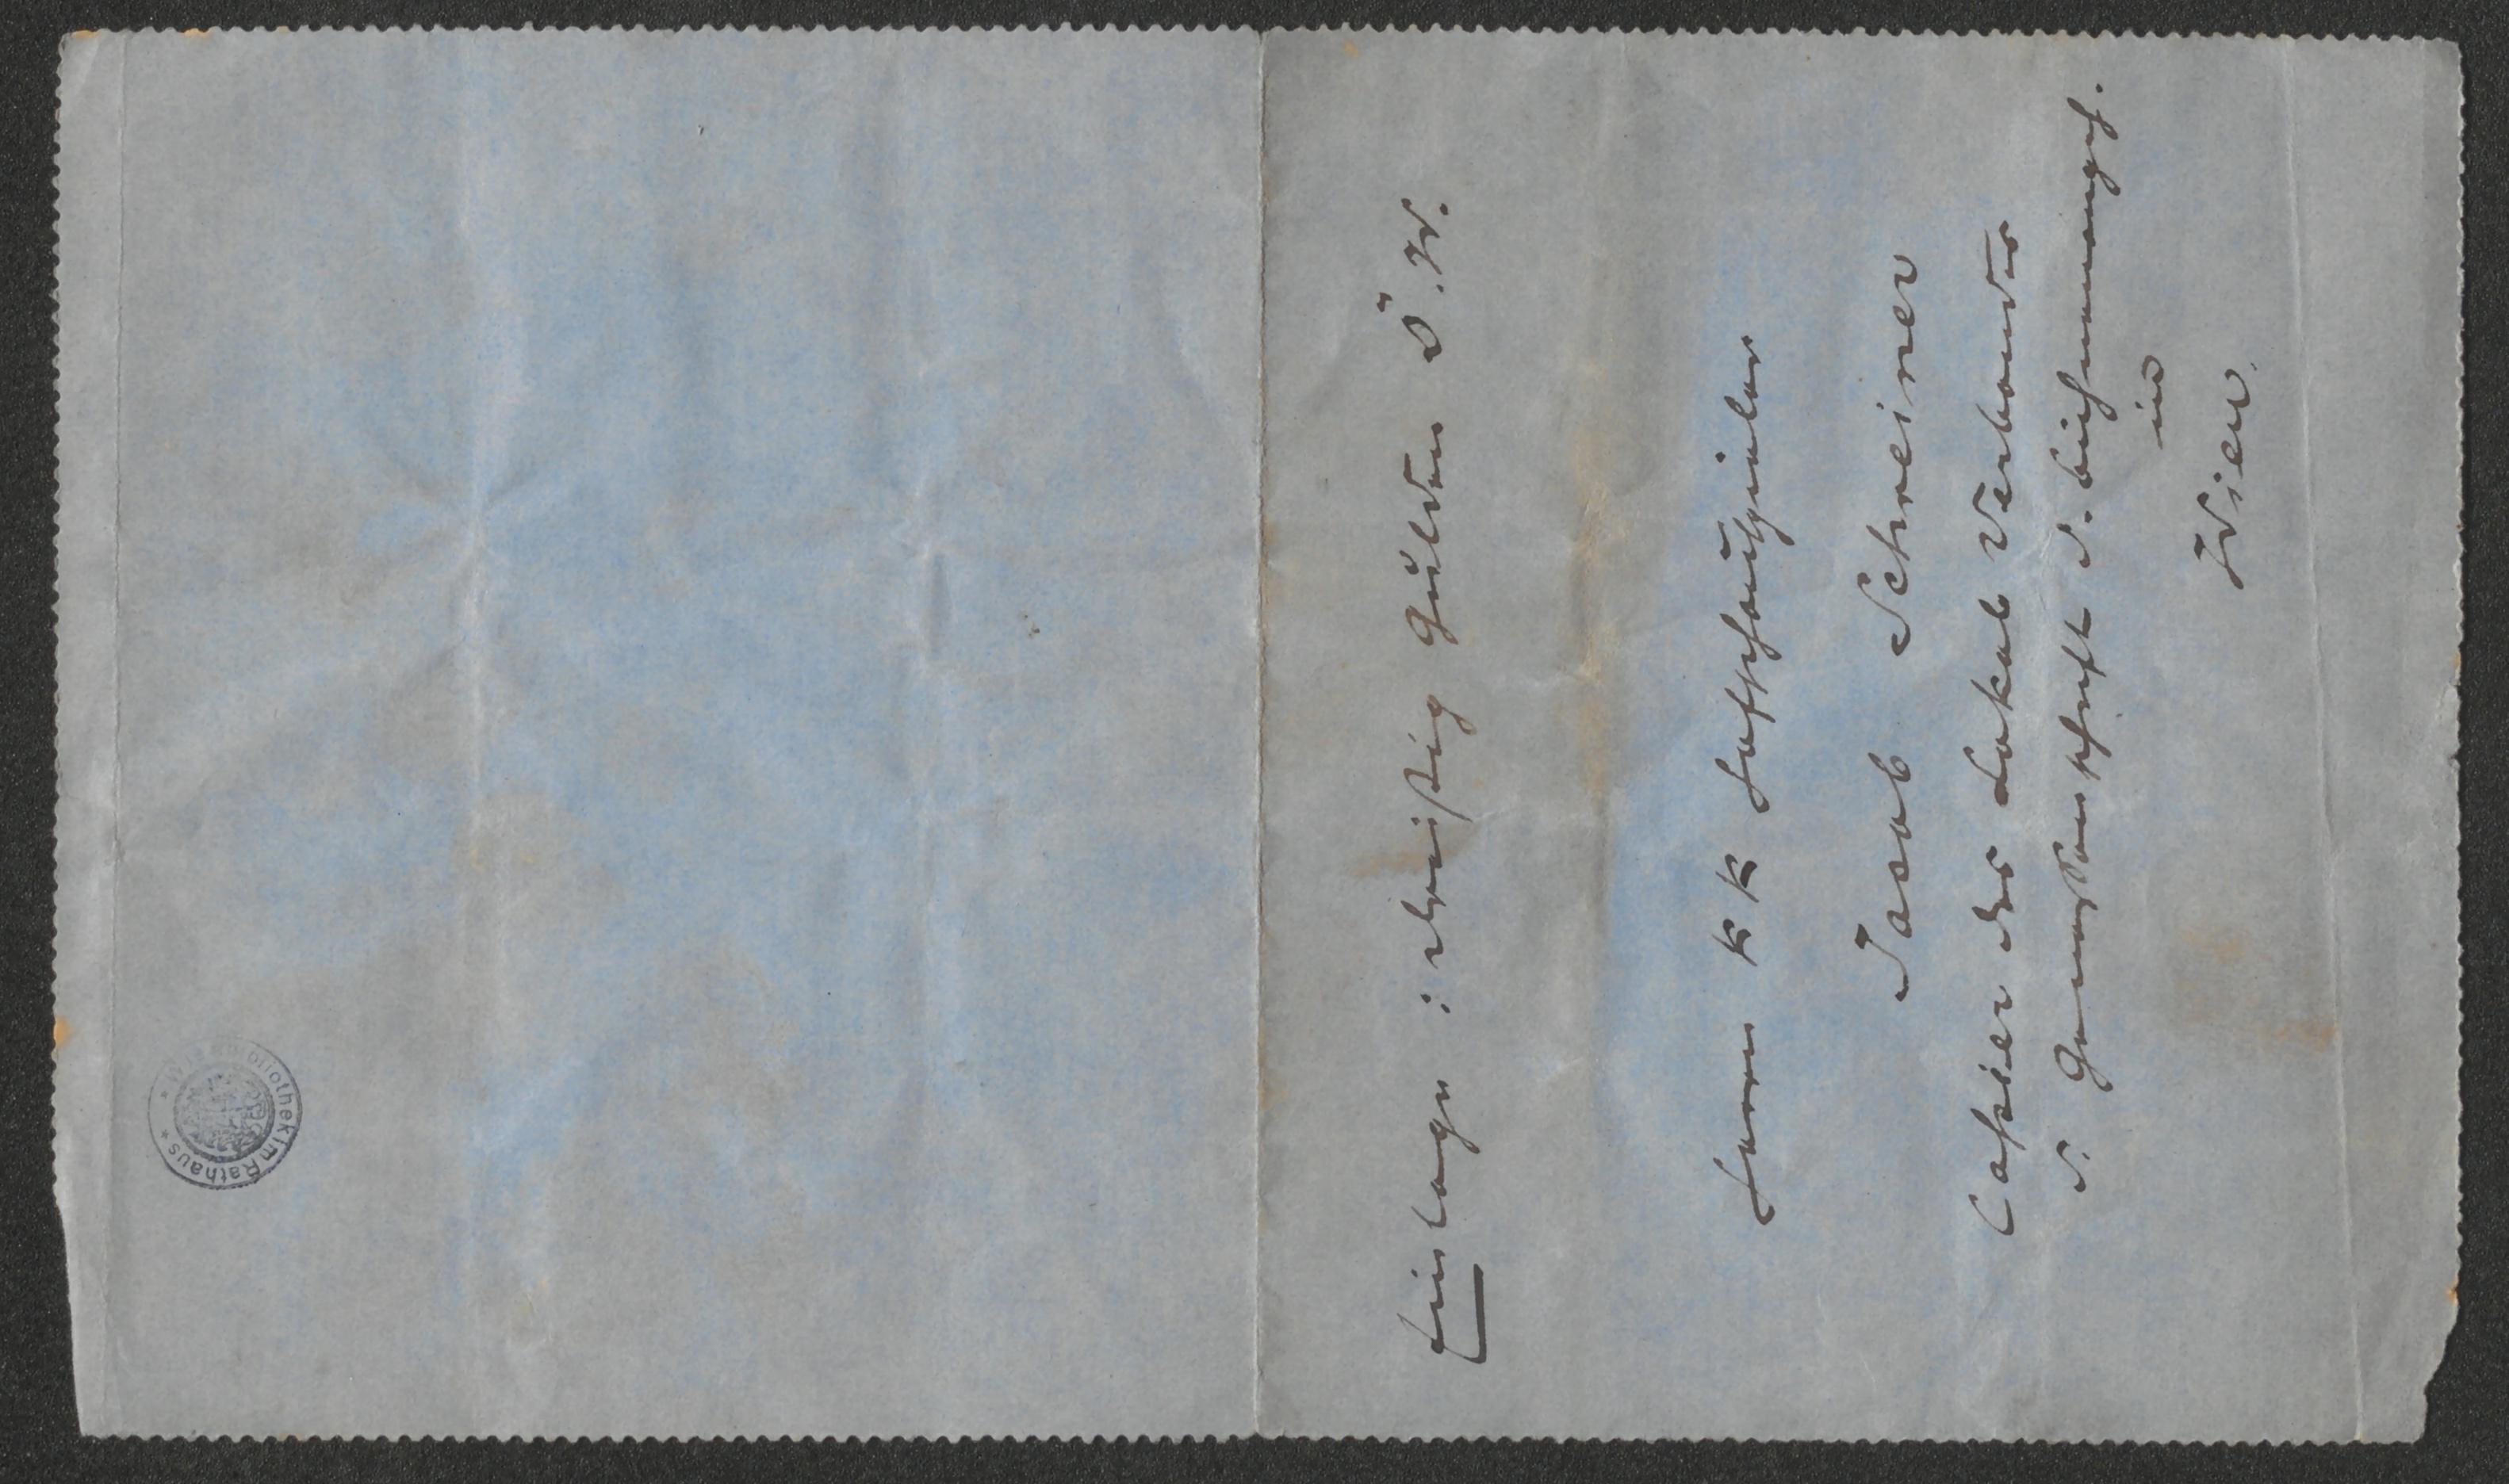 Einlage: dreißig Gulden Ö.W.
Herrn KK Hofschauspieler
Jacob Schreiner
Cassier des Lokal Verbandes
d. Genossenschaft d. Bühnenangeh.
in
Wien.
Wienbibliothek im Rathaus